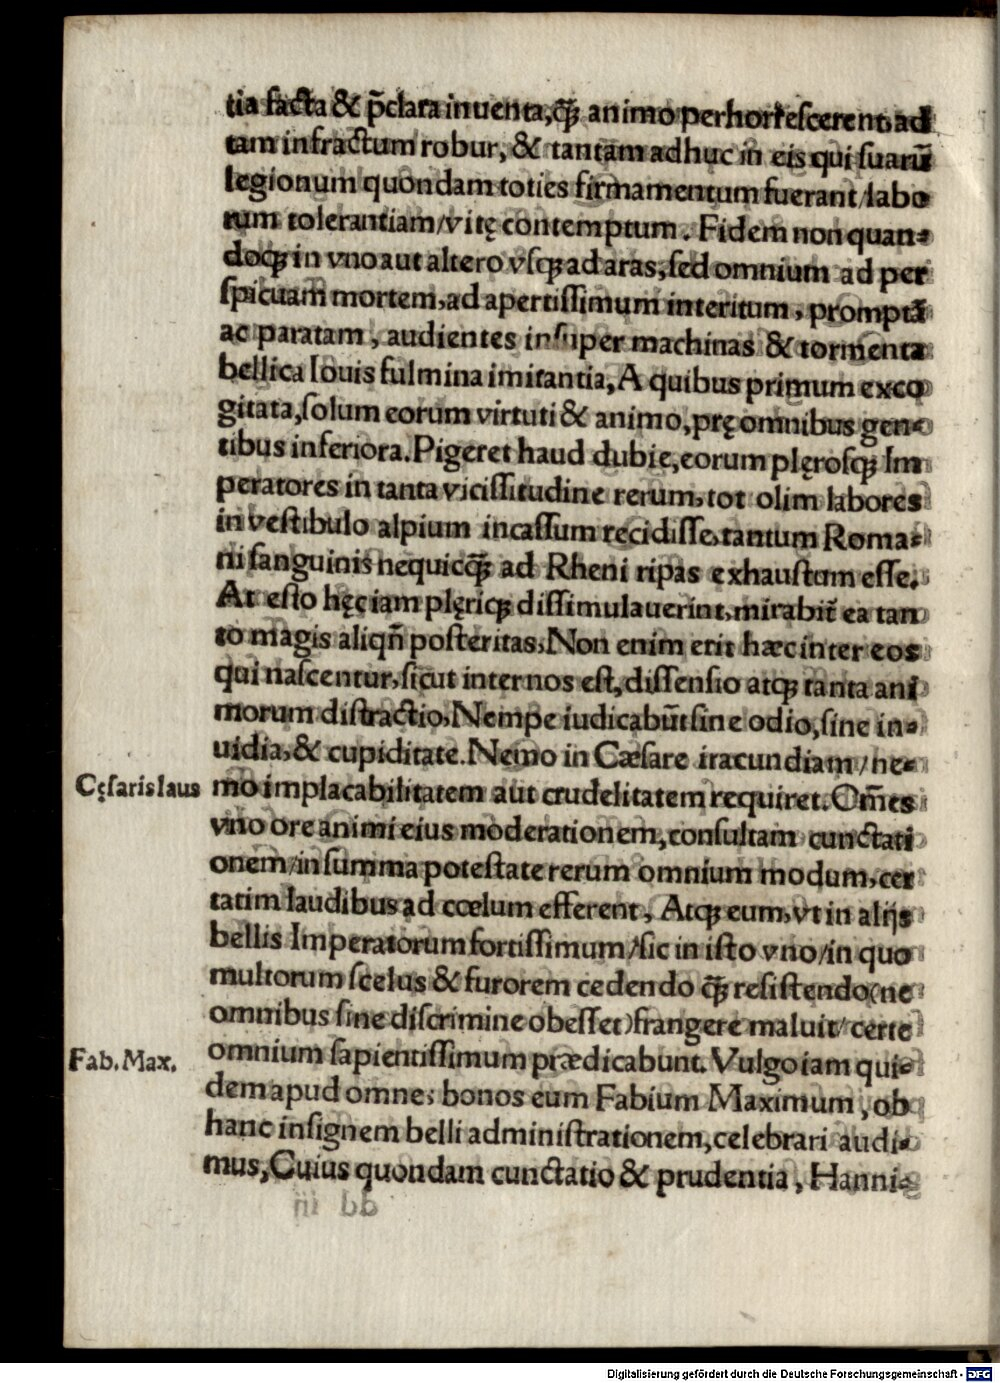 tia facta & p̃clara inuenta,q̃ꝫ animo perhorrescerent,ad
tam infractum robur, & tantam adhuc in eis qui suarũ
legionum quondam toties firmamentum fuerant/labo
rum tolerantiam/vitę contemptum. Fidem non quan-
doqꝫ in vno aut altero vsqꝫ ad aras, sed omnium ad per
spicuam mortem, ad apertissimum interitum, promptã
ac paratam, audientes insuper machinas & tormenta
bellica Iouis fulmina imitantia, A quibus primum exco
gitata, solum eorum virtuti & animo, prę omnibus gen-
tibus inferiora. Pigeret haud dubie, eorum plęrosqꝫ Im
peratores in tanta vicissitudine rerum, tot olim labores
in vestibulo alpium incassum recidisse, tantum Roma-
ni sanguinis nequicq̃ꝫ ad Rheni ripas exhaustum esse.
At esto hęc iam plęriqꝫ dissimulauerint, mirabit̃ ea tan
to magis aliqñ posteritas, Non enim erit hæc inter eos
qui nascentur, sicut inter nos est, dissensio atqꝫ tanta ani
morum distractio, Nempe iudicabũt sine odio, sine in-
uidia, & cupiditate. Nemo in Cæsare iracundiam/ne-
Cęsaris laus
mo implacabilitatem aut crudelitatem requiret. Om̃es
vno ore animi eius moderationem, consultam cunctati
onem/in summa potestate rerum omnium modum, cer
tatim laudibus ad cœlum efferent, Atqꝫ eum, vt in alijs
bellis Imperatorum fortissimum/sic in isto vno/in quo
multorum scelus & furorem cedendo q̃ꝫ resistendo(ne
omnibus sine discrimine obesset)frangere maluit/certe
Fab. Max.
omnium sapientissimum prædicabunt. Vulgo iam qui-
dem apud omnes bonos eum Fabium Maximum, ob
hanc insignem belli administrationem, celebrari audi-
mus, Cuius quondam cunctatio & prudentia, Hanni-
dd iij
Digitalisierung gefördert durch die Deutsche Forschungsgemeinschaft - DFG